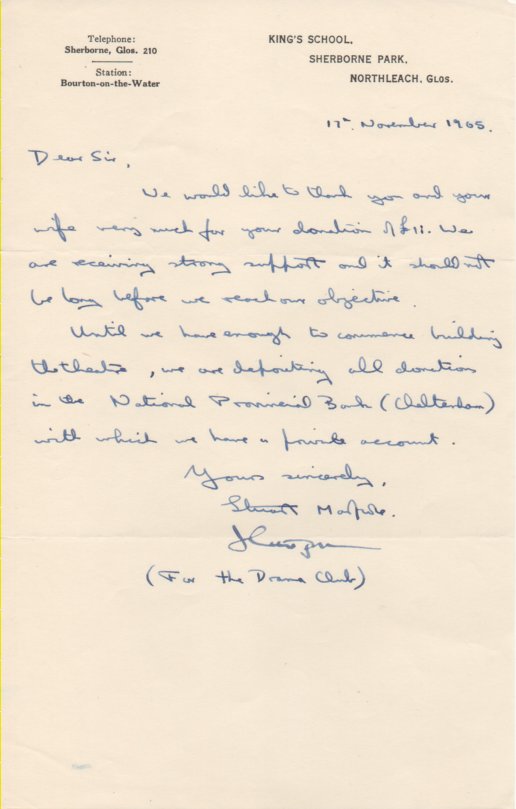 Telephone:
Sherborne, Glos. 210
Station:
Bourton-on-the-Water
KING'S SCHOOL,
SHERBORNE PARK,
NORTHLEACH, GLOS.
17th. November 1965.
Dear Sir,
We would like to thank you and your
wife very much for your donation of £11. We
are receiving strong support and it should not
be long before we reach our objective.
Until we have enough to commence building
the theatre, we are depositing all donations
in the National Provincial Bank (Cheltenham)
with which we have a private account.
Yours sincerely,
Stuart
(For the Drama Club)